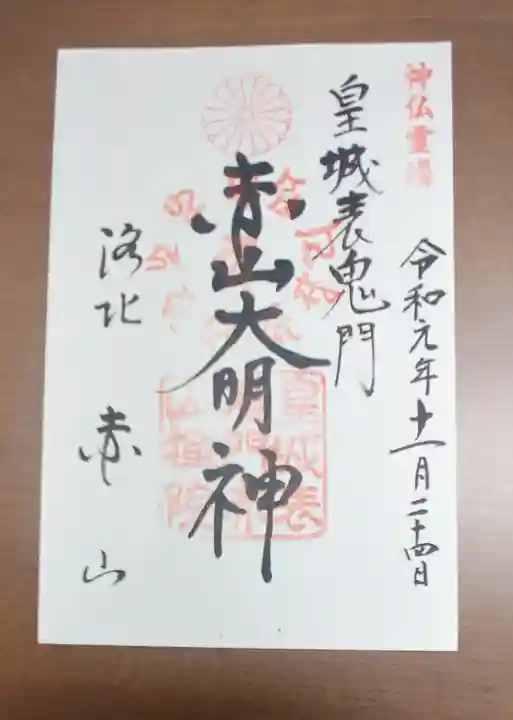 神仏霊場
令和元年十一月二十四日
皇城表鬼門
赤山大明神
洛北 赤山